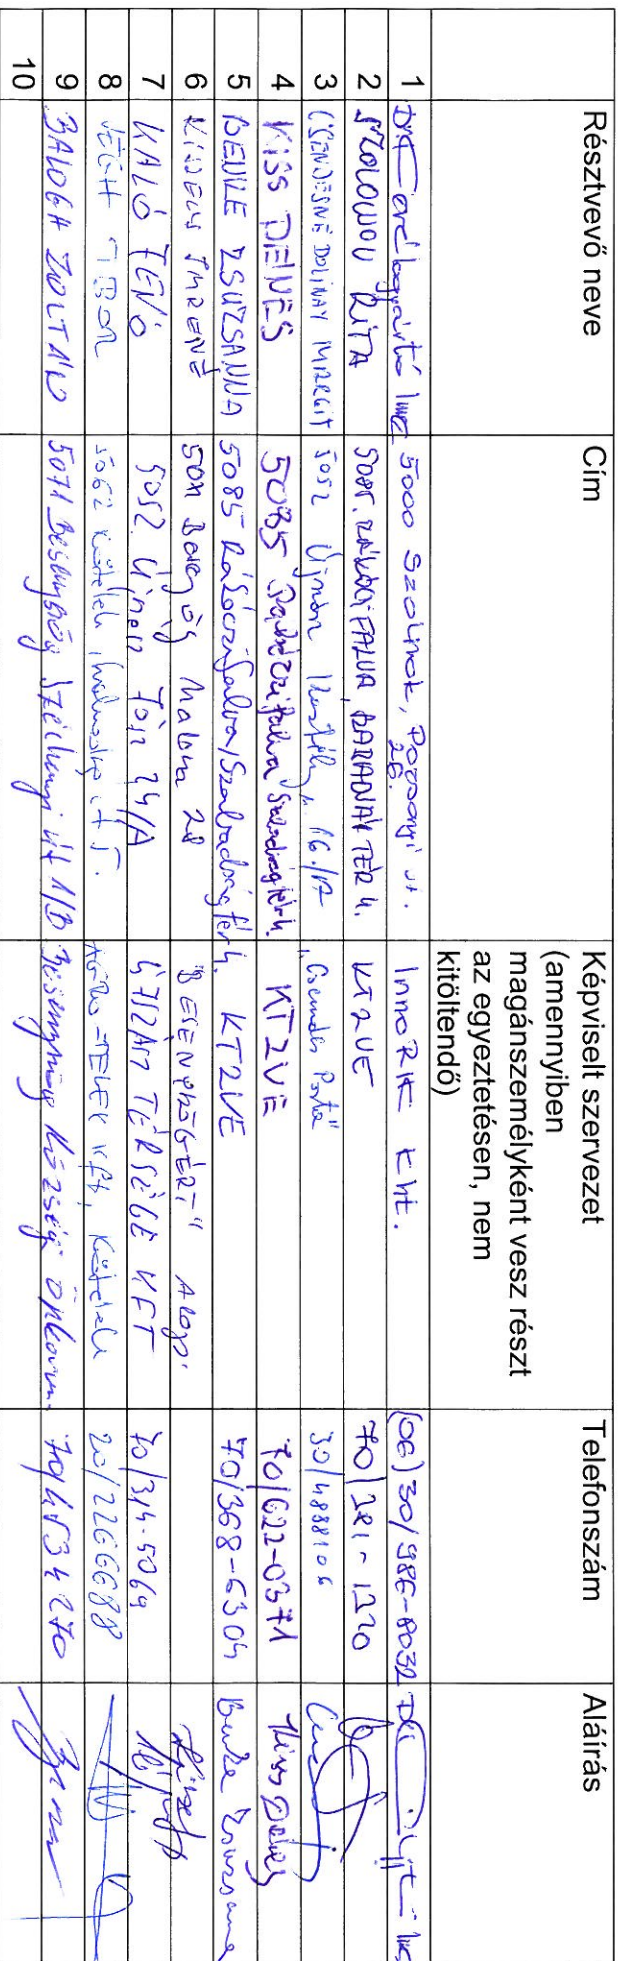 Résztvevő neve
Cím
Képviselt szervezet
(amennyiben
magánszemélyként vesz részt
az egyeztetésen, nem
kitöltendő)
Telefonszám
Aláírás
1 5000 Szolnok, Pozsonyi út. 26. InnoRIK Kht.
2 RITA 5085. RÁKÓCZIFALVA, BARANYAI TÉR 4. KT2VE 70/381-1220
3 CSENDESNÉ DOLINAY MARGIT 5052 Újszász Kastély u. 16./A "Csendes Porta" 30/4888106
4 KISS DÉNES 5085 Rákóczifalva Szabadság tér 4. KT2VE 70/622-0371
5 BENKE ZSUZSANNA 5085 Rákóczifalva, Szabadság tér 4. KT2VE 70/368-6304 Benke Zsuzsanna
6 IMRÉNÉ Malom 28 "BESENYSZÖGÉRT" Alapí.
7 KALÓ JENŐ 5052. Újszász 24/A ÚJSZÁSZ TÉRSÉGE KFT 70/314-5069
8 VÉGH TIBOR 5062 Kőtelek, út 5. -TELEK Kft, Kőtelek 20/2266688
9 BALOGH ZOLTÁN 5071 Besenyszög Széchenyi út 1/B Besenyszög Község Önkorm. 70/4534270
10